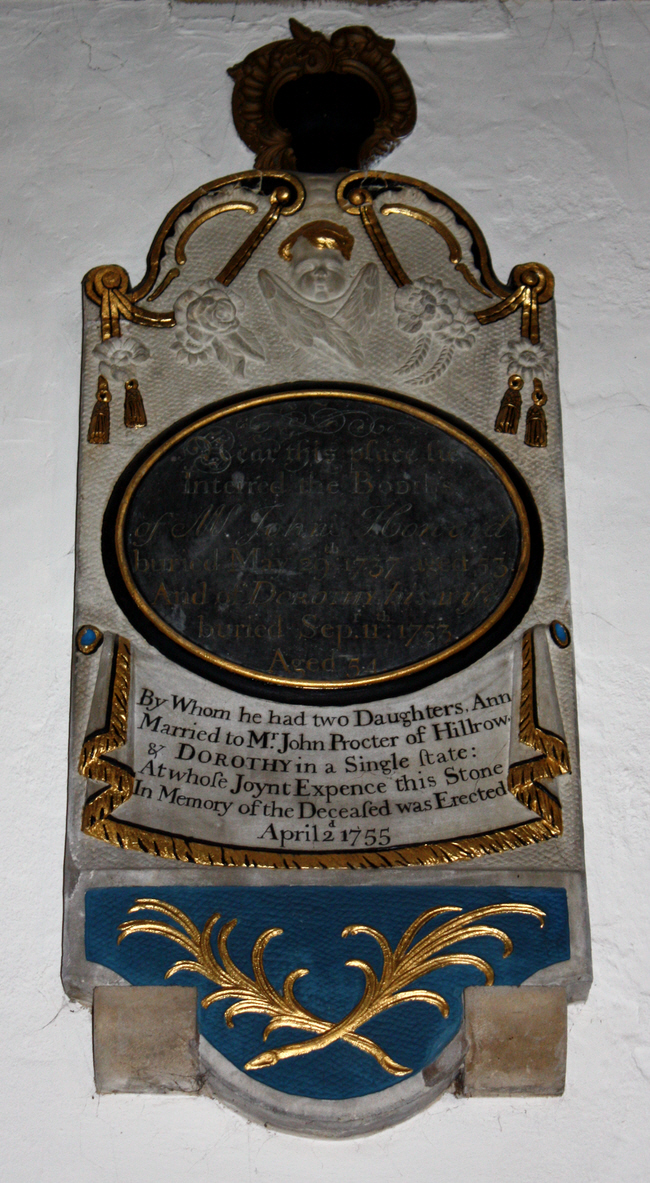 Near this place lie
Interred the Bodies
of Mr. John Howard
buried May 23d 1737 aged 53.
And of Dorothy his wife
buried Sep. 11th 1753
Aged 54
By Whom he had two Daughters, Ann
Married to Mr. John Procter of Hillrow.
& DOROTHY in a Single ſtate:
At whoſe Joynt Expence this Stone
In Memory of the Deceaſed was Erected
April 2d 1755